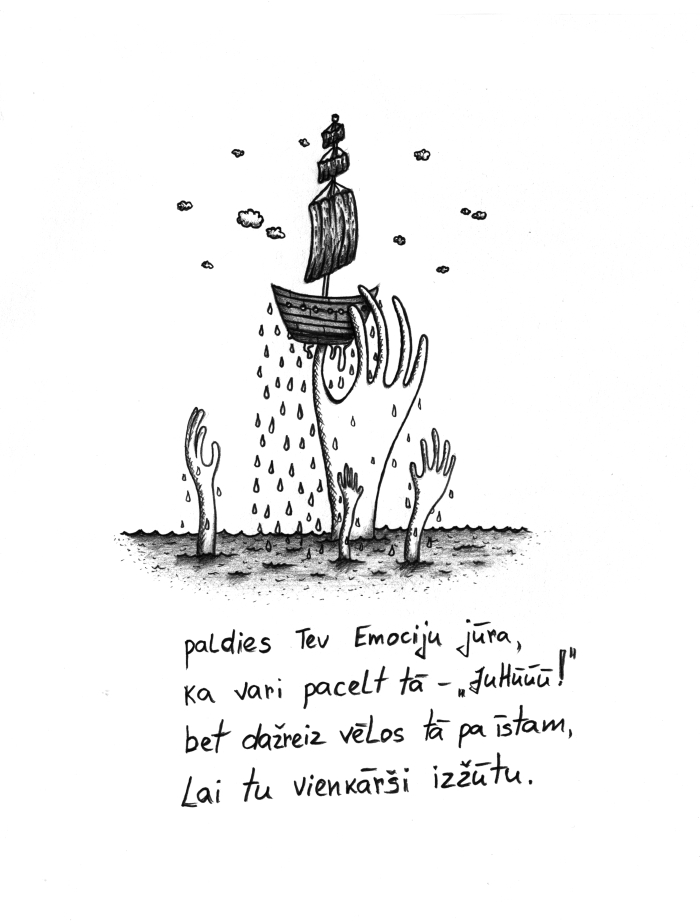 paldies Tev Emociju jūra,
ka vari pacelt tā – „JuHūūū!"
bet dažreiz vēlos tā pa īstam,
Lai tu vienkārši izžūtu.